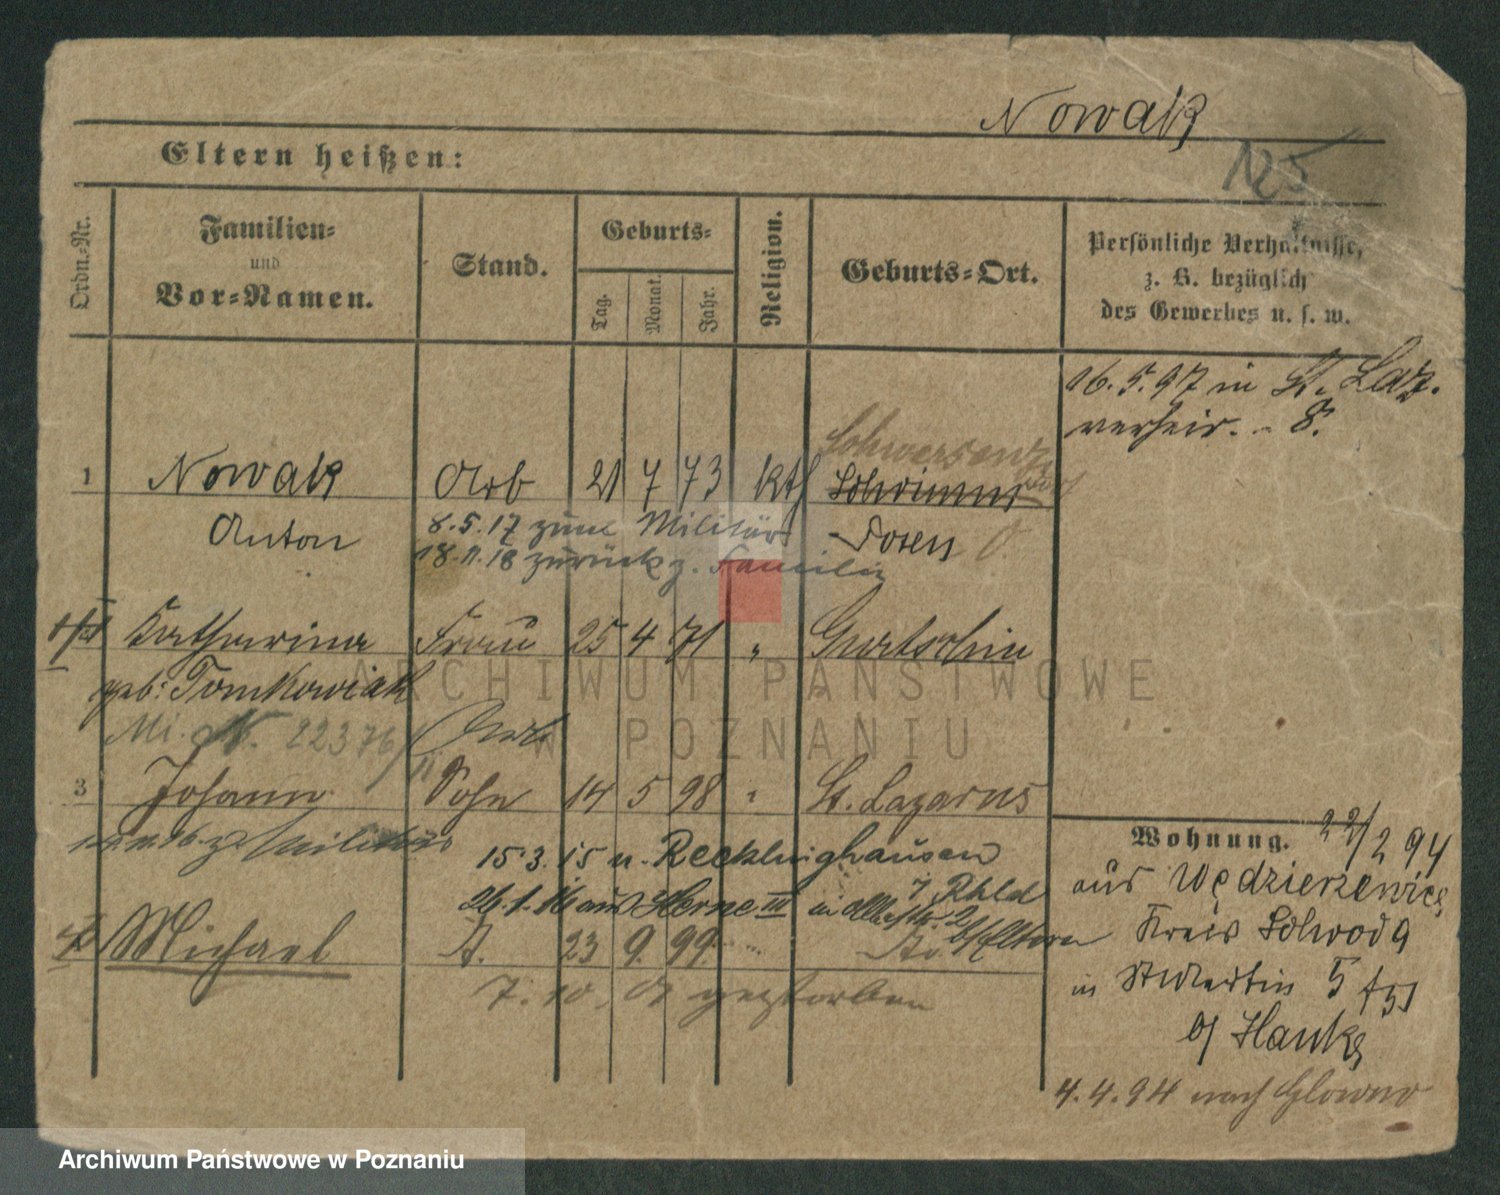 Nowak
Eltern heißen:
125
Ordn.-Nr.
Familien-
und
Vor-Namen.
Stand.
Geburts-
Tag.
Monat.
Jahr.
Religion.
Geburts-Ort.
Persönliche Verhältnisse,
z. B. bezüglich
des Gewerbes u. s. w.
16.5.97 in St. Laz.
verheir. - 8.
Schwersenz
1 Nowak Arb 21 7 73 kth
Anton Posen
8.5.17 zum Militär
18.11.18 zurück z. Familie
Katharina Frau 25 4 71 " Gurtschin
geb: Tomkowiak
22376
3 Johann Sohn 14 5 98 " St. Lazarus
Militär
15.3.15 n. Recklinghausen
26.1.16 aus Herne III in
b/Eltern
Michael S. 23 9. 99. "
7.10. gestorben
Wohnung. 22/2 94
aus Wędzierzewice
Kreis Schroda
in St Martin 5
b/ Hanke
4.4.94 nach Glowno
ARCHIWUM PAŃSTWOWE
W POZNANIU
Archiwum Państwowe w Poznaniu